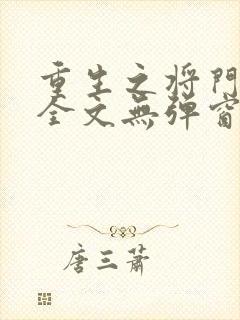 重生之将門
全文無弹窗
唐三萧